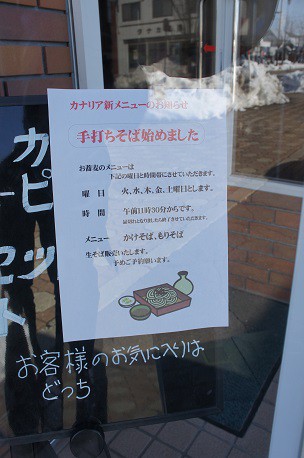 カナリア新メニューのお知らせ
手打ちそば始めました
お蕎麦のメニューは
下記の曜日と時間帯にさせていただきます。
曜日 火、水、木、金、土曜日とします。
時間 午前11時30分からです。
品切れとなりましたら終了させていただきます。
メニュー かけそば、もりそば
生そば販売いたします。
予めご予約願います。
カ
ピ
セッ
ト
お客様のお気に入りは
どっち